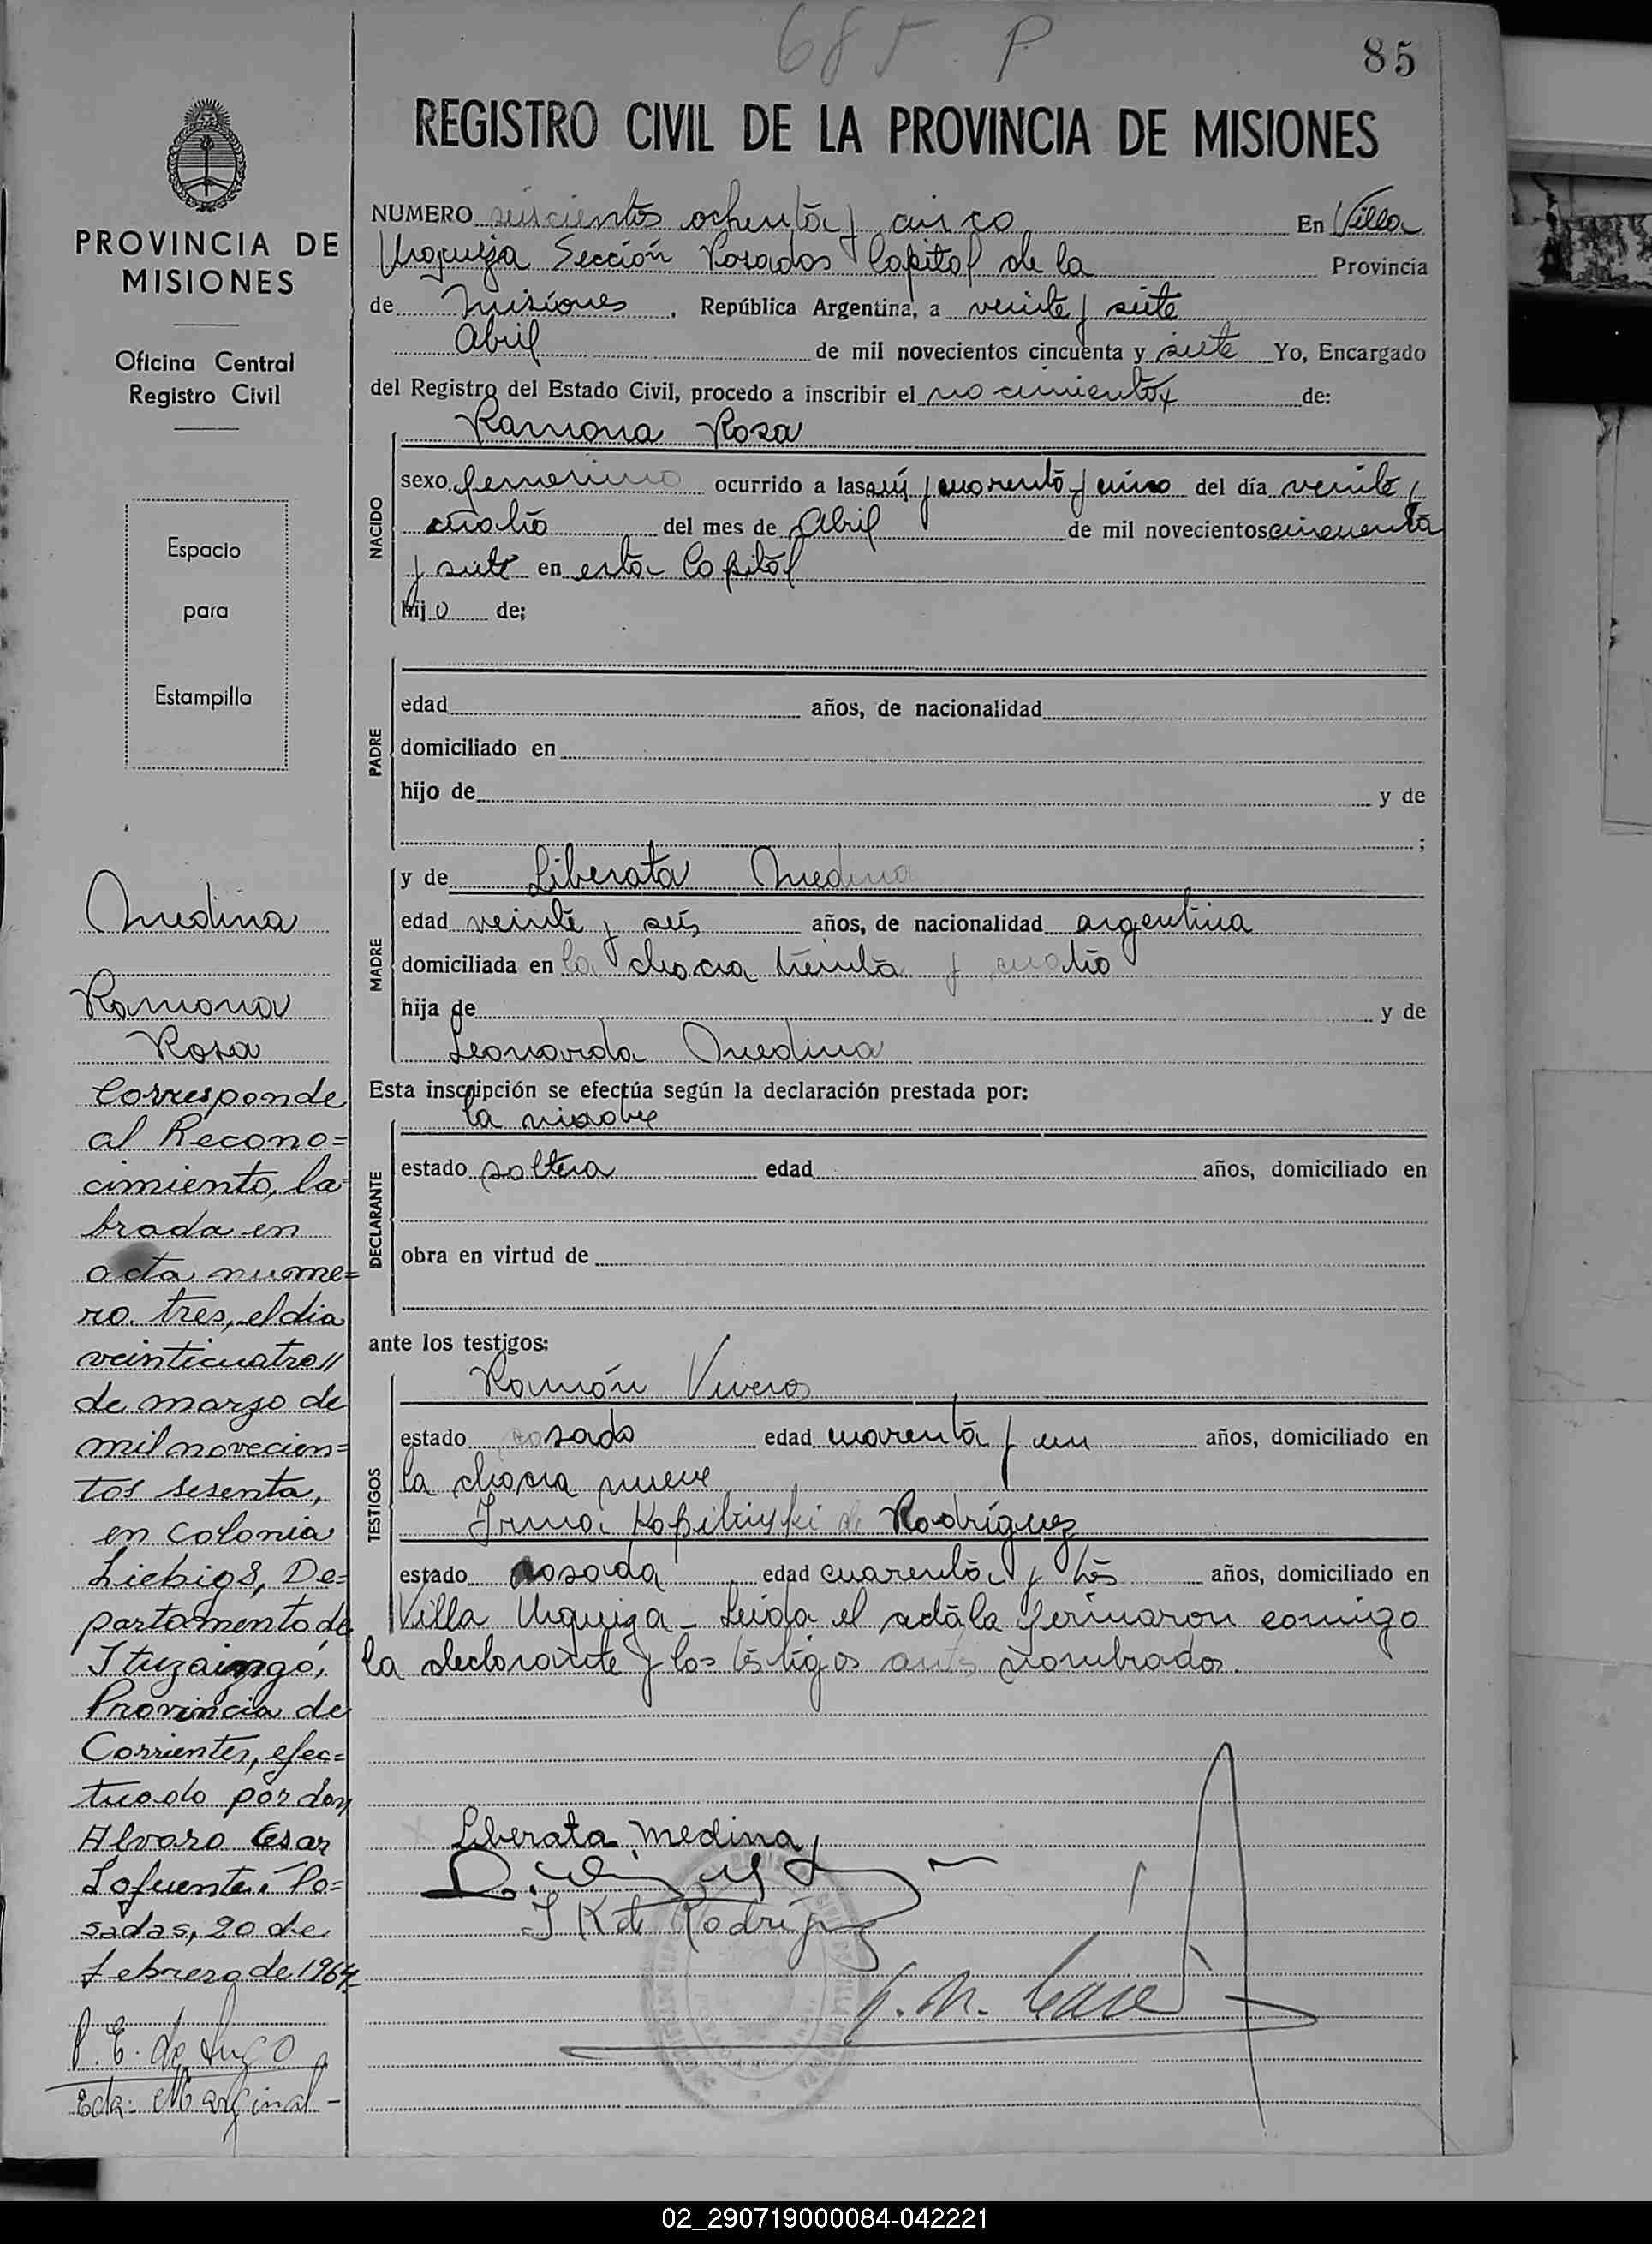 685 P
85
REGISTRO CIVIL DE LA PROVINCIA DE MISIONES
PROVINCIA DE
MISIONES
Oficina Central
Registro Civil
Espacio
para
Estampilla
NUMERO seiscientos ochenta y cinco En Villa
Urquiza Sección Posadas Capital de la Provincia
de Misiones, República Argentina, a veinte y siete
Abril de mil novecientos cincuenta y siete Yo, Encargado
del Registro del Estado Civil, procedo a inscribir el nacimiento de:
NACIDO
Ramona Rosa
sexo femenino ocurrido a las seis y cuarenta y cinco del día veinte y
cuatro del mes de Abril de mil novecientos cincuenta
y siete en esta Capital
hijo de;
PADRE
edad años, de nacionalidad
domiciliado en
hijo de y de
;
MADRE
y de Liberata Medina
edad veinte y seis años, de nacionalidad argentina
domiciliada en la chacra treinta y cuatro
hija de y de
Leonarda Medina
Esta inscripción se efectúa según la declaración prestada por:
DECLARANTE
la madre
estado soltera edad años, domiciliado en
obra en virtud de
ante los testigos:
TESTIGOS
Ramón Vivero
estado casado edad cuarenta y un años, domiciliado en
la chacra nueve
Irma de Rodríguez
estado casada edad cuarenta y tres años, domiciliado en
Villa Urquiza - Leida el acta la firmaron comigo
la declarante y los testigos antes nombrados.
Liberata Medina
I K de Rodríguez
Medina
Ramona
Rosa
Corresponde
al Recono=
cimiento, la
brada en
acta nume=
ro tres, el dia
veinticuatro //
de marzo de
mil novecien=
tos sesenta,
en Colonia
Liebigs, De=
partamento de
Ituzaingó,
Provincia de
Corrientes, efec=
tuado por don
Alvaro Cesar
Lafuente. Po=
sadas, 20 de
febrero de 1964
Marginal -
02_290719000084-042221